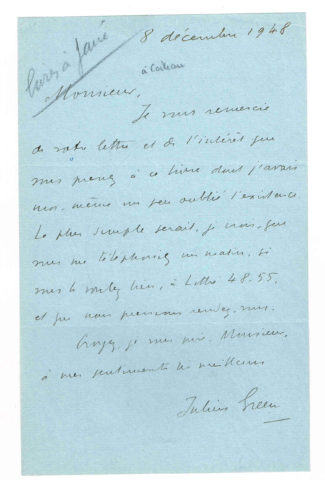 8 décembre 1948
livres à
Monsieur,
Je vous remercie
de votre lettre et de l'intérêt que
vous prenez à ce livre dont j'avais
moi-même un peu oublié l'existence.
Le plus simple serait, je crois, que
vous me téléphoniez un matin, si
vous le voulez bien, à Littré 48.55,
et que nous prenions rendez-vous.
Croyez, je vous prie, Monsieur,
à mes sentiments les meilleurs
Julien Green